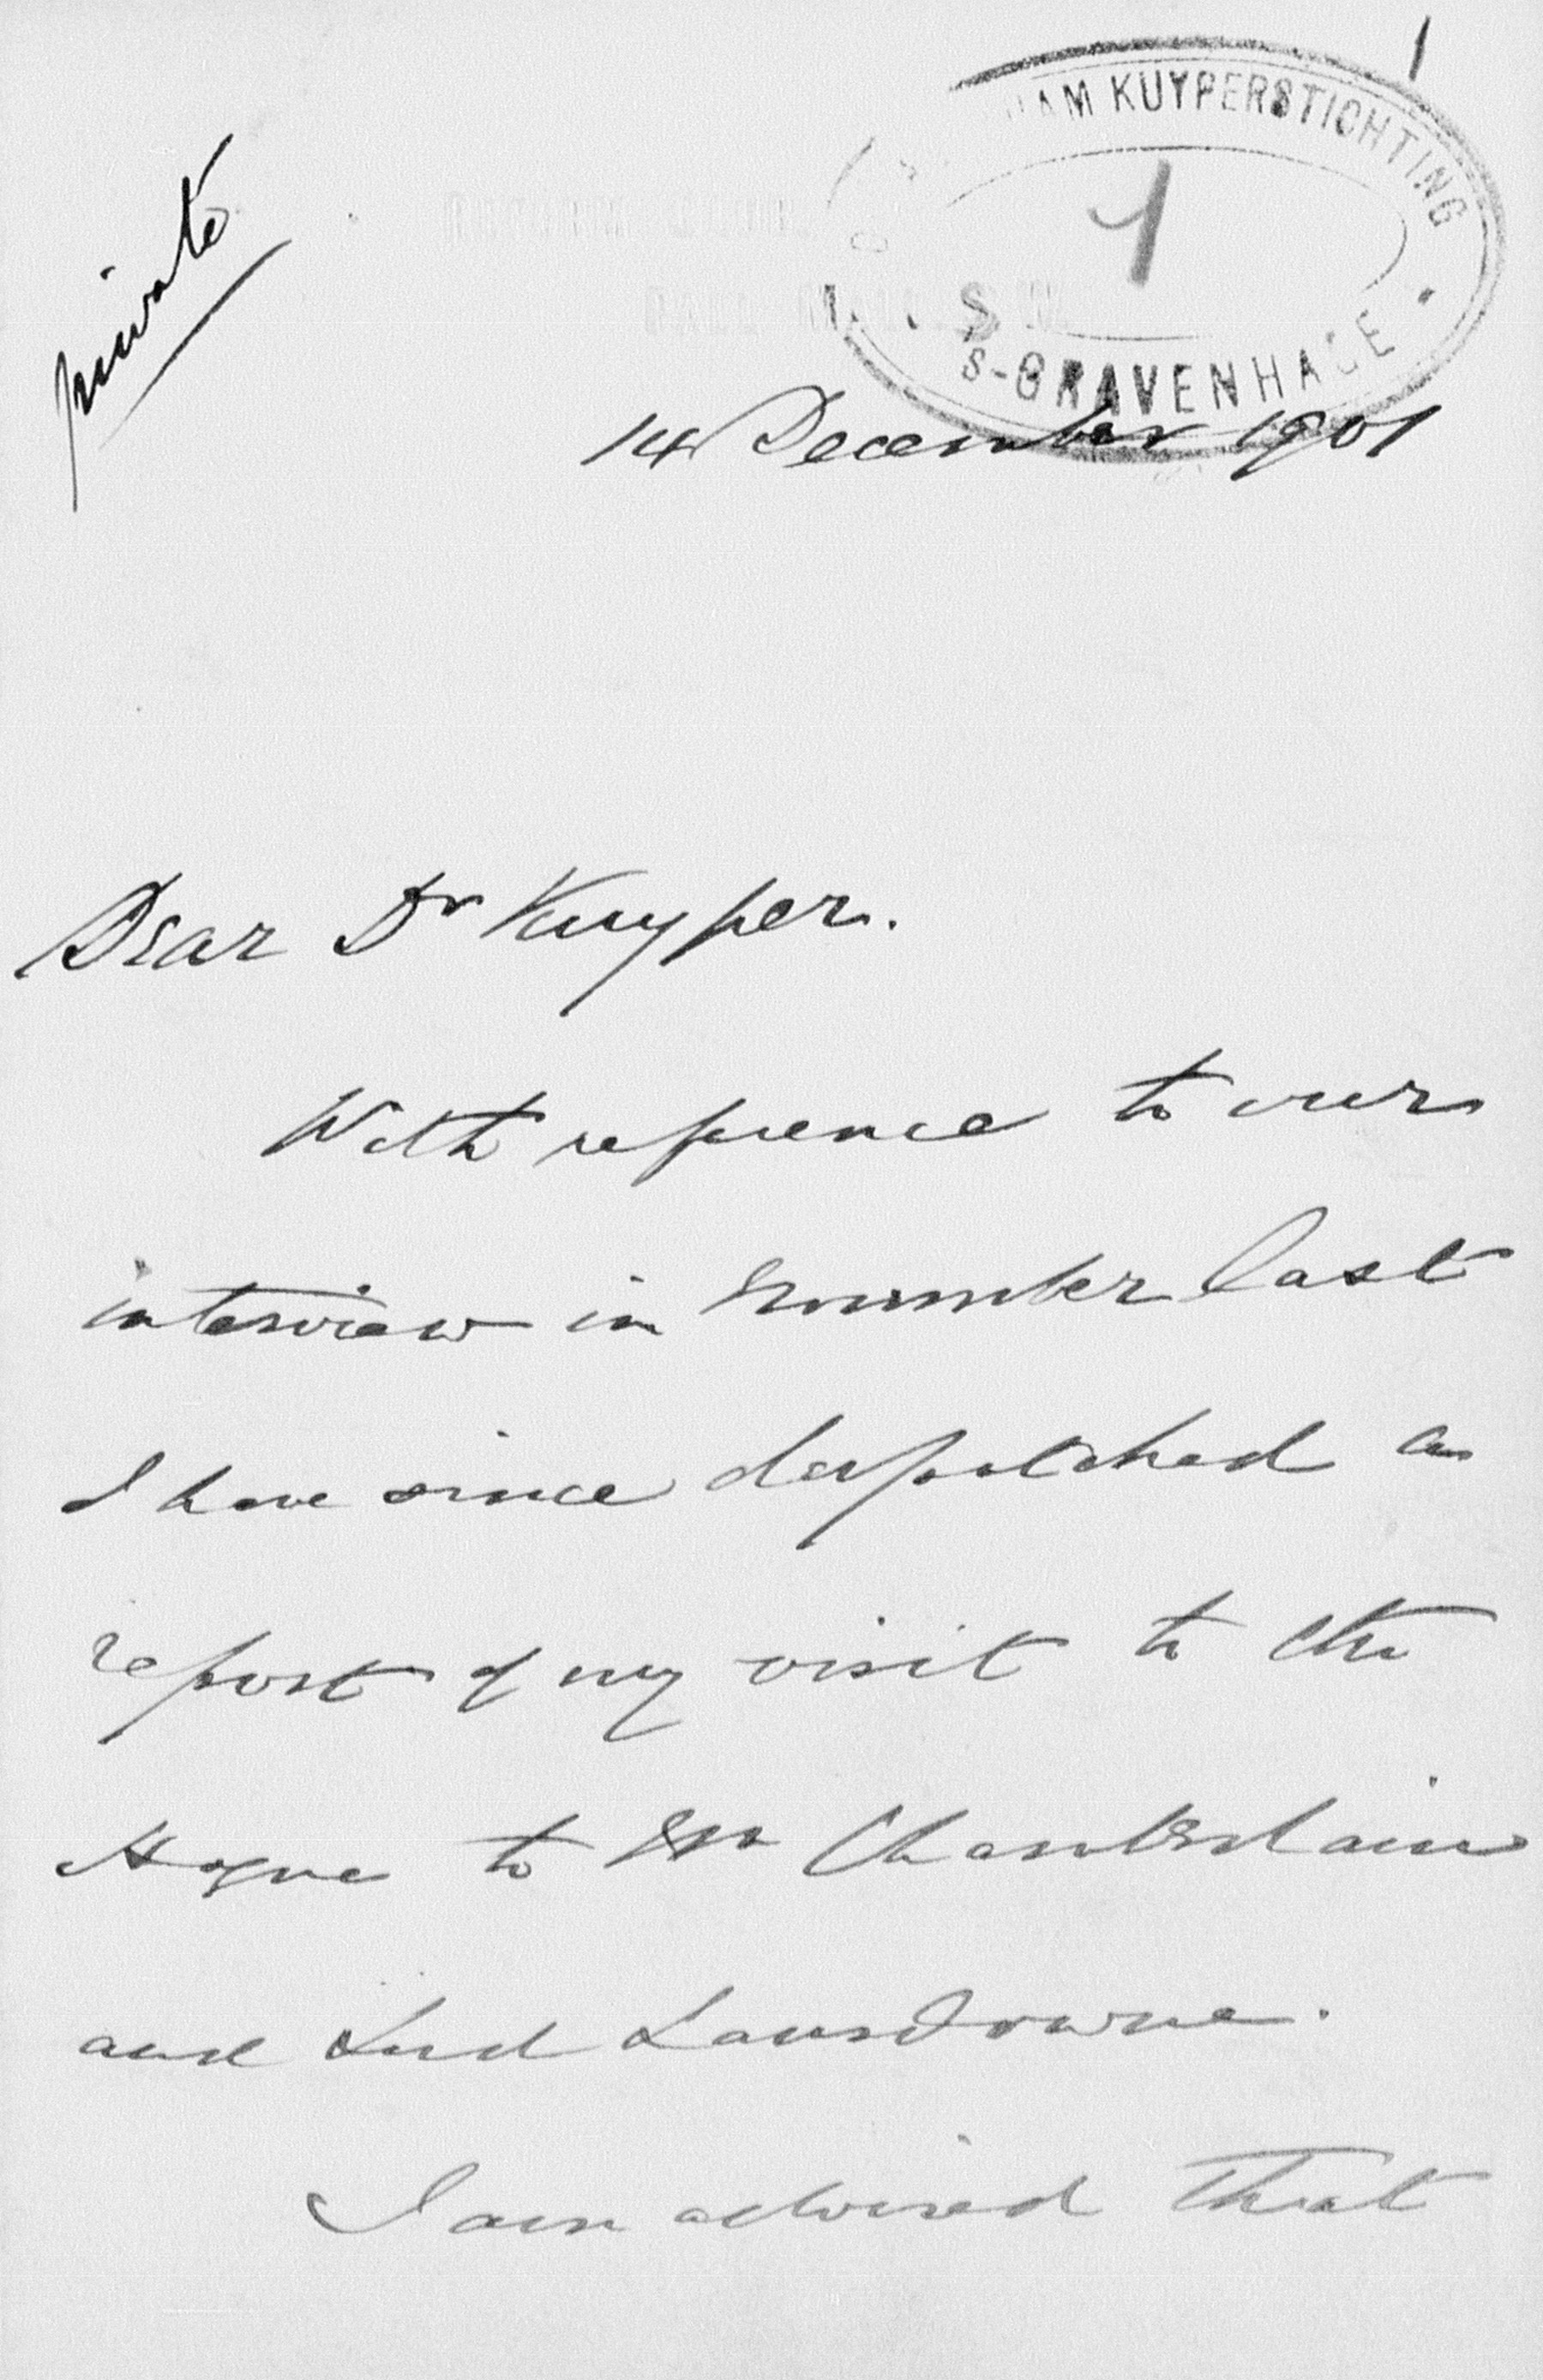 1
private
AM KUYPERSTICHTING
1
PALL MALL. S.W.
S-GRAVENHAGE
14 December 1901
Dear Dr Kuyper.
With reference to our
interview in November last
I have since despatched a
report of my visit to the
Hague to Mr Chamberlain
and Lord Lansdowne.
I am advised that